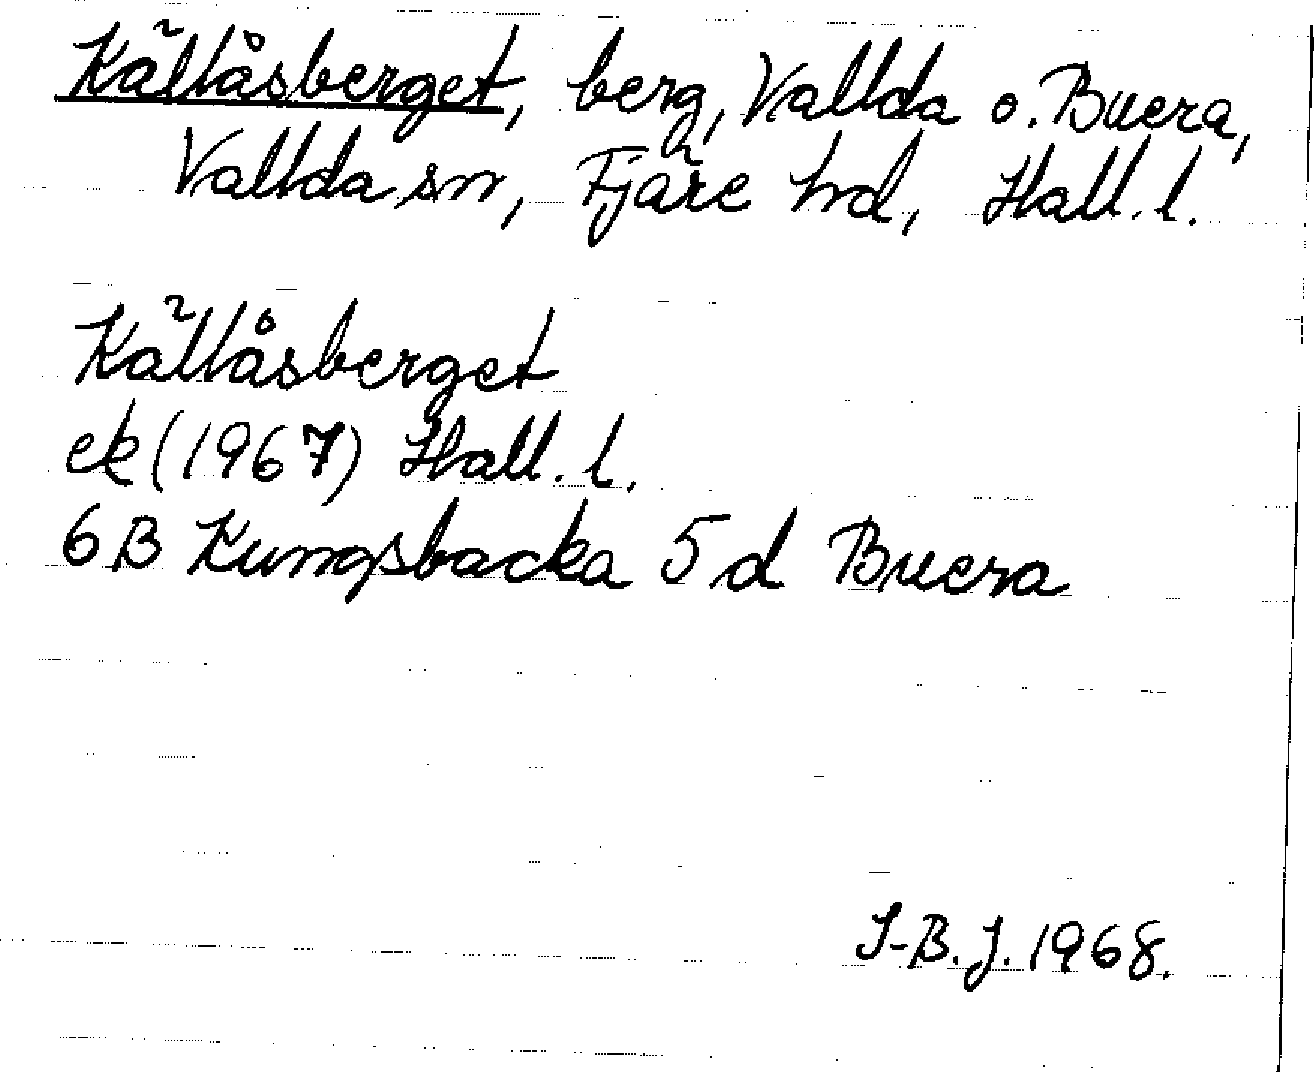 Källåsberget, berg, Vallda o. Buera,
Vallda sn, Fjäre hd, Hall. l.
Källåsberget
ek (1967) Hall. l.
6B Kungsbacka 5d Buera
I-B. J. 1968.